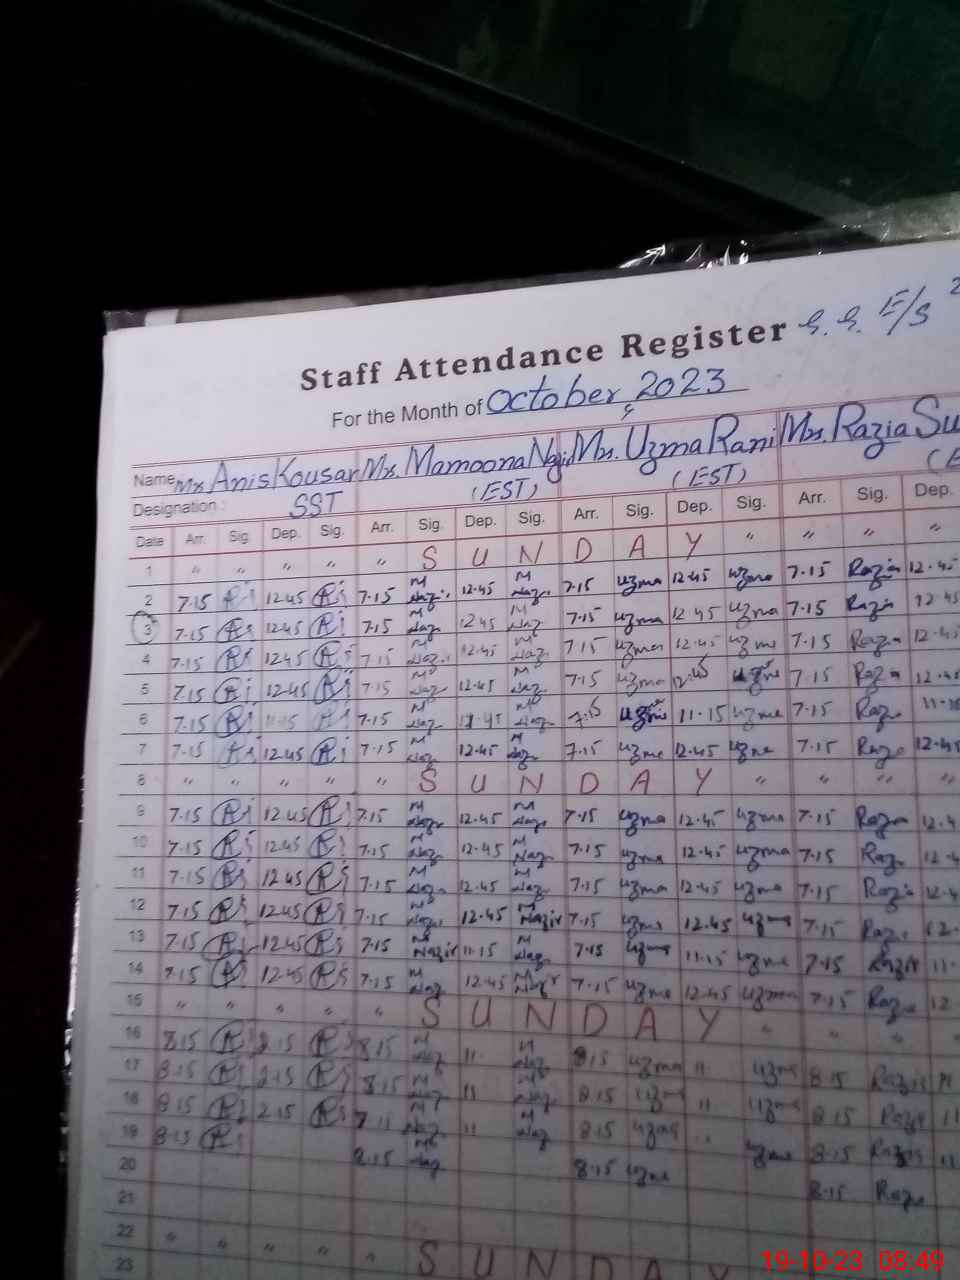 Staff Attendance Register G. G. E/S
For the Month of October, 2023
Name Mrs. Anis Kousar Mrs. Mamoona Nazir Mrs. Uzma Rani Mrs. Razia Su
Designation : SST (EST) (EST) (E
Date Arr. Sig. Dep. Sig. Arr. Sig. Dep. Sig. Arr. Sig. Dep. Sig. Arr. Sig. Dep.
1 " " " " " S U N D A Y " " " "
2 7.15 12.45 7.15 M Nazir 12.45 M Nazir 7.15 uzma 12.45 uzma 7.15 Razia 12.45
3 7.15 12.45 7.15 M Naz 12.45 M Naz 7.15 uzma 12.45 uzma 7.15 Razia 12.45
4 7.15 12.45 7.15 M Naz 12.45 M Naz 7.15 uzma 12.45 uzma 7.15 Razia 12.4
5 7.15 12.45 7.15 M Naz 12.45 M Naz 7.15 uzma 12.45 uzma 7.15 Razia 12.4
6 7.15 11.15 7.15 M Naz M Naz 7.15 uzma 11.15 uzma 7.15 Raz 11.
7 7.15 12.45 7.15 M Naz 12.45 M Naz 7.15 uzma 12.45 uzma 7.15 Raz 12.45
8 " " " " " S U N D A Y " " " "
9 7.15 12.45 7.15 M Naz 12.45 M Naz 7.15 uzma 12.45 uzma 7.15 Razia 12.4
10 7.15 12.45 7.15 M Naz 12.45 M Naz 7.15 uzma 12.45 uzma 7.15 Raz 12.4
11 7.15 12.45 7.15 M Naz 12.45 M Naz 7.15 uzma 12.45 uzma 7.15 Razia 12.4
12 7.15 12.45 7.15 M Naz 12.45 M Nazir 7.15 uzma 12.45 uzma 7.15 Raz 12.
13 7.15 12.45 7.15 M Nazir 11.15 M Naz 7.15 uzma 11.15 uzma 7.15 Razia 11.
14 7.15 12.45 7.15 M Naz 12.45 M Nazir 7.15 uzma 12.45 uzma 7.15 Raz 12
15 " " " " " S U N D A Y " " "
16 8.15 2.15 8.15 M Naz 11 M Naz 8.15 uzma 11 uzma 8.15 Razia 11
17 8.15 2.15 8.15 M Naz 11 M Naz 8.15 uzma 11 uzma 8.15 Razia 11
18 8.15 2.15 M Naz 11 M Naz 8.15 uzma uzma 8.15 Razia 11
19 8.15 8.15 M Naz 8.15 uzma 8.15 Raz
20
21
22 " " " " " S U N D A Y
23
19-10-23 08:49